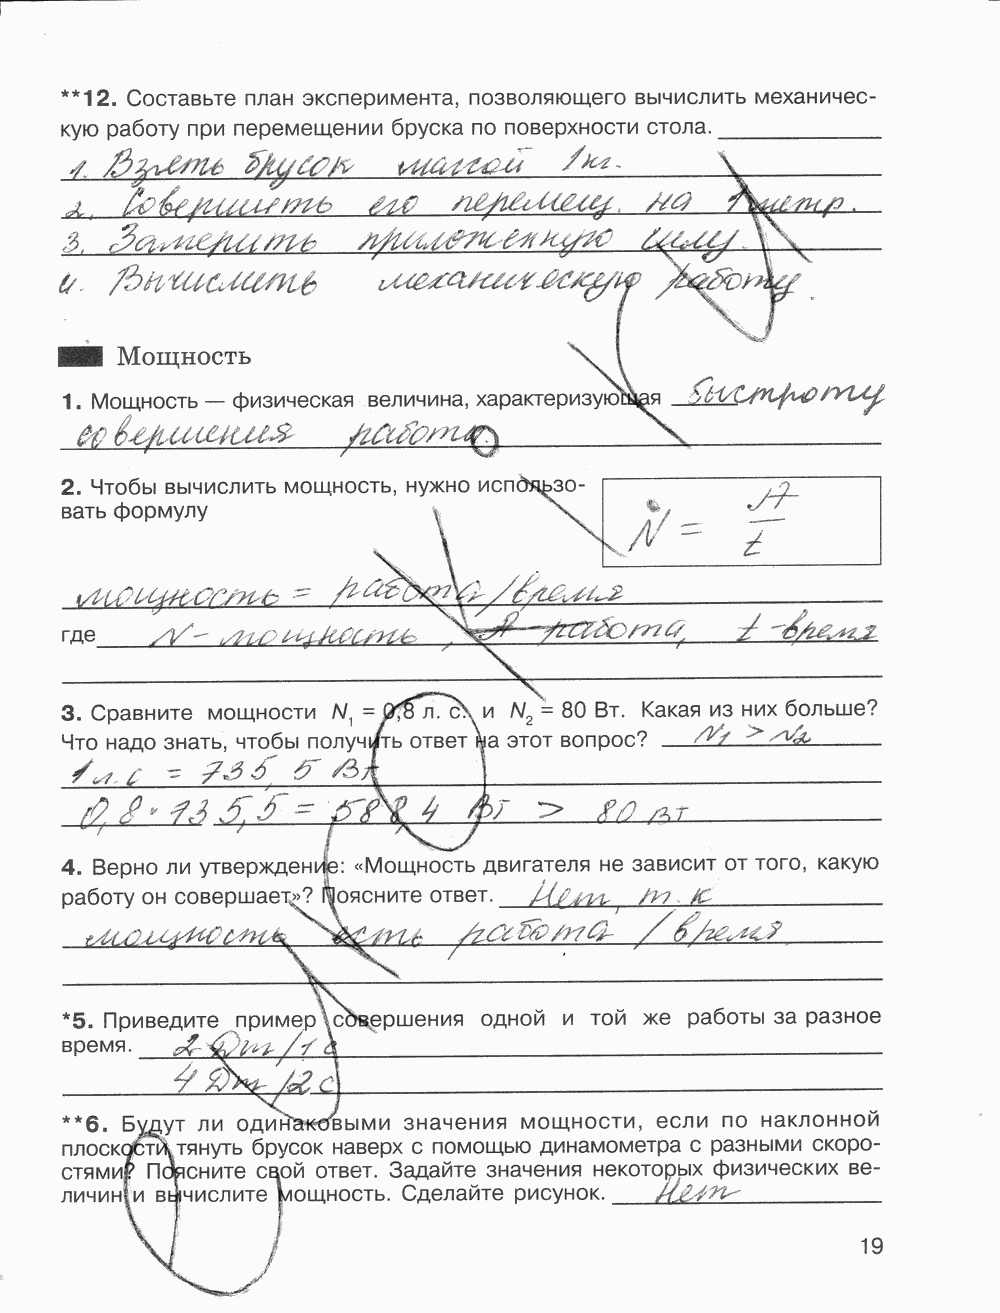 **12. Составьте план эксперимента, позволяющего вычислить механичес-
кую работу при перемещении бруска по поверхности стола.
1. Взять брусок массой 1кг.
2. Совершить его перемещ. на 1 метр.
3. Замерить приложенную силу.
4. Вычислить механическую работу.
Мощность
1. Мощность — физическая величина, характеризующая быстроту
совершения работы.
2. Чтобы вычислить мощность, нужно использо-
вать формулу
N = A/t
мощность = работа/время
где N - мощность, A - работа, t - время
3. Сравните мощности N₁ = 0,8 л. с. и N₂ = 80 Вт. Какая из них больше?
Что надо знать, чтобы получить ответ на этот вопрос? N₁ > N₂
1 л.с = 735,5 Вт
0,8 · 735,5 = 588,4 Вт > 80 Вт
4. Верно ли утверждение: «Мощность двигателя не зависит от того, какую
работу он совершает»? Поясните ответ. Нет, т.к
мощность есть работа / время
*5. Приведите пример совершения одной и той же работы за разное
время. 2 Дж/1 с
4 Дж/2 с
**6. Будут ли одинаковыми значения мощности, если по наклонной
плоскости тянуть брусок наверх с помощью динамометра с разными скоро-
стями? Поясните свой ответ. Задайте значения некоторых физических ве-
личин и вычислите мощность. Сделайте рисунок. Нет
19